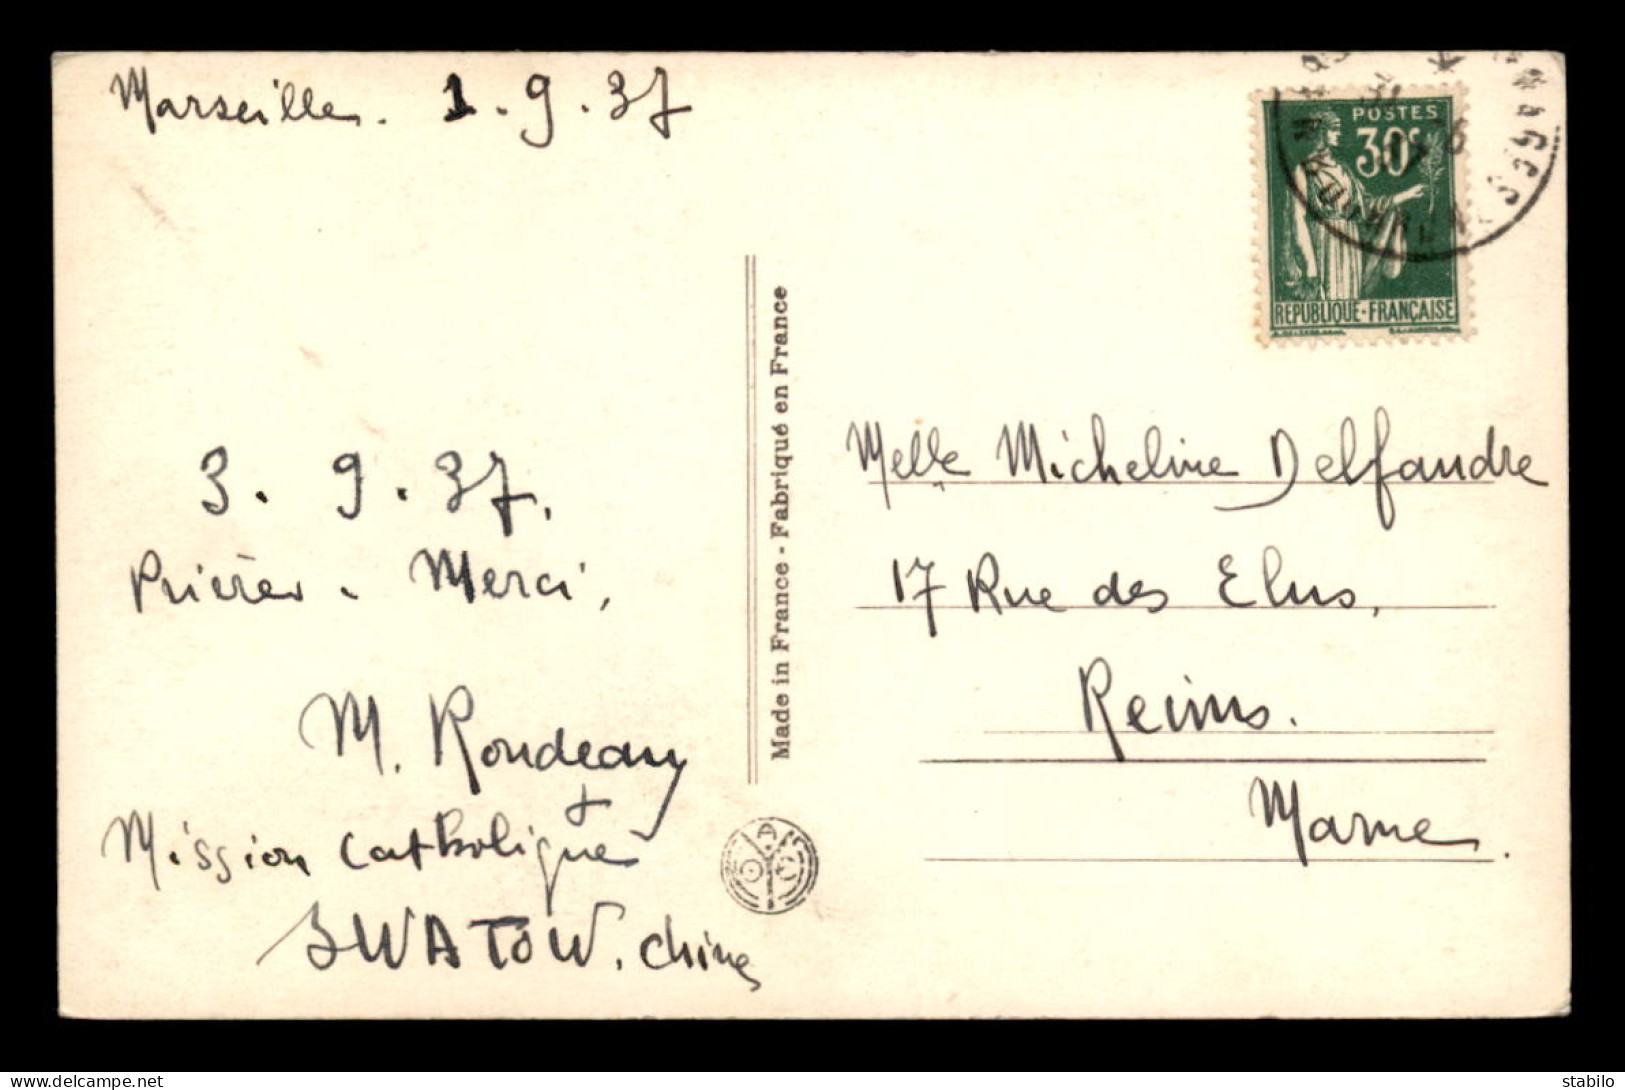 Marseille. 1.9.37
3.9.37.
Prières. Merci,
M. Rondeau
Mission Catholique
SWATOW. Chine
Made in France - Fabriqué en France
POSTES
30c
REPUBLIQUE-FRANÇAISE
Melle Micheline Delfandre
17 Rue des Elus,
Reims.
Marne.
delcampe.net
stabilo